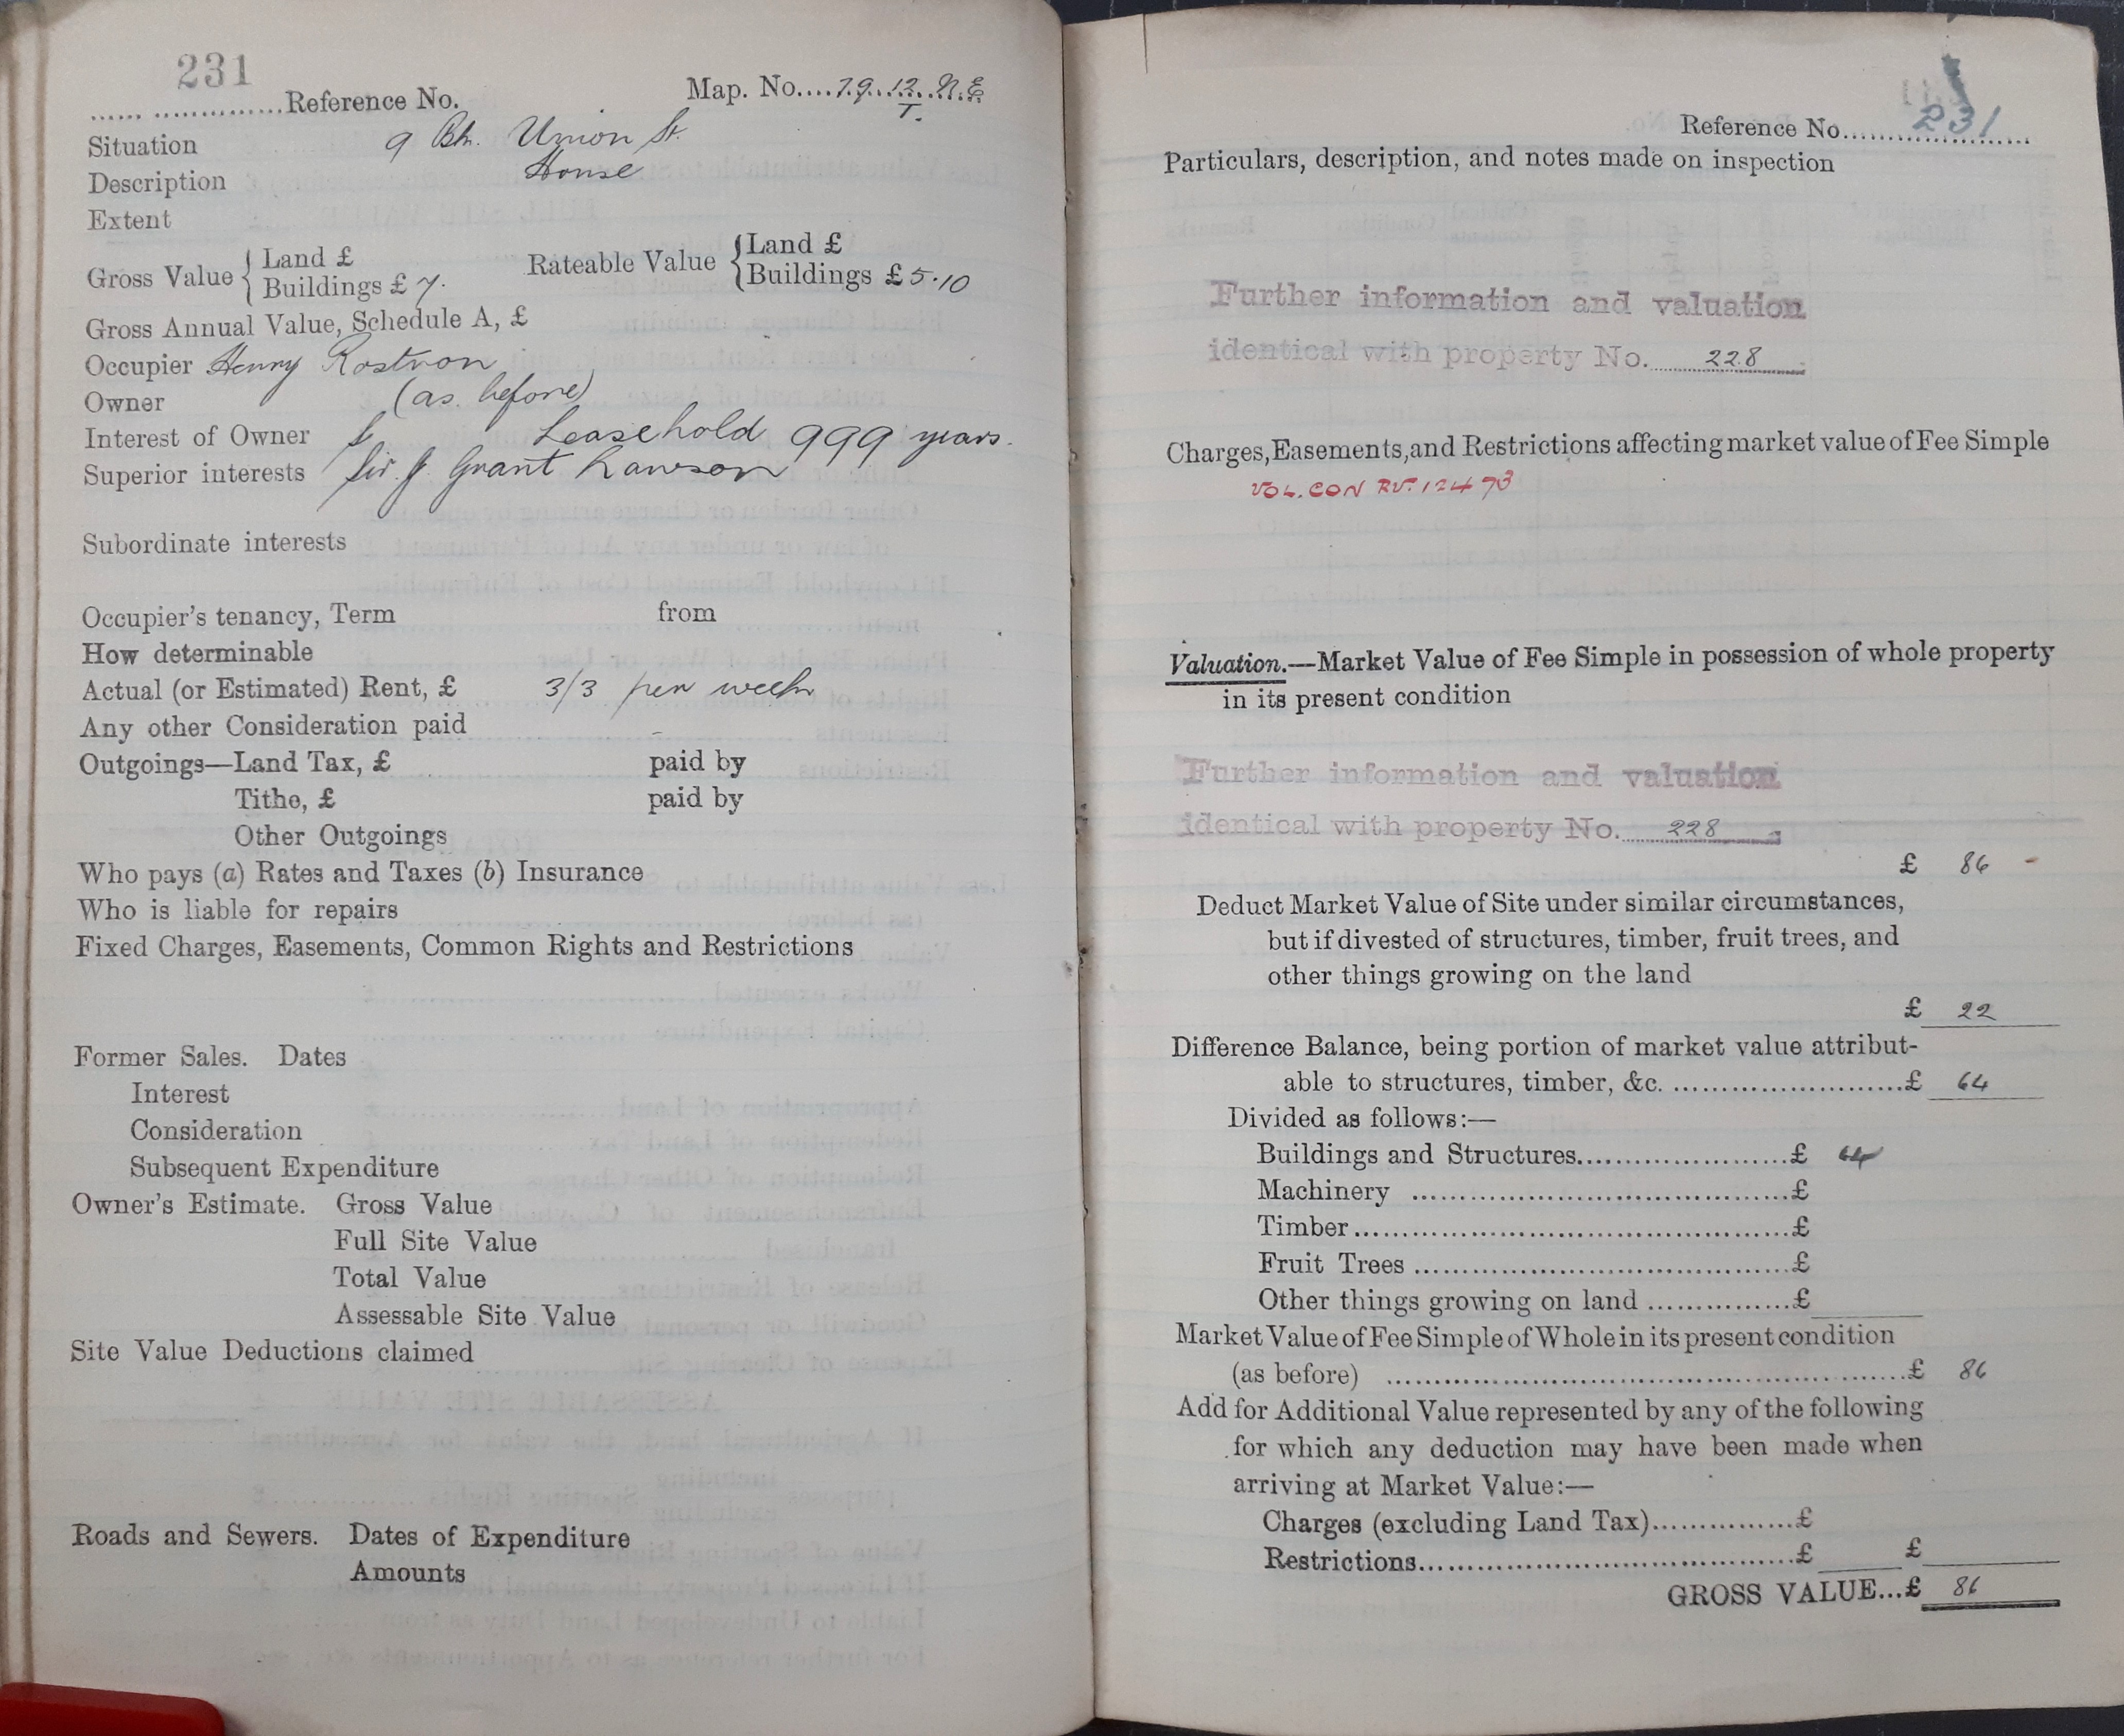 231
.................Reference No.
Map. No....79..12..N.E
T.
Situation 9 Bk. Union St.
Description House
Extent
Gross Value { Land £
Buildings £ 7.
Rateable Value { Land £
Buildings £ 5.10
Gross Annual Value, Schedule A, £
Occupier Henry Rostron
Owner (as before)
Interest of Owner Leasehold 999 years.
Superior interests Sir J. Grant Lawson
Subordinate interests
Occupier's tenancy, Term from
How determinable
Actual (or Estimated) Rent, £ 3/3 per week
Any other Consideration paid -
Outgoings—Land Tax, £ paid by
Tithe, £ paid by
Other Outgoings
Who pays (a) Rates and Taxes (b) Insurance
Who is liable for repairs
Fixed Charges, Easements, Common Rights and Restrictions
Former Sales. Dates
Interest
Consideration
Subsequent Expenditure
Owner's Estimate. Gross Value
Full Site Value
Total Value
Assessable Site Value
Site Value Deductions claimed
Roads and Sewers. Dates of Expenditure
Amounts
Reference No. 231
Particulars, description, and notes made on inspection
Further information and valuation
identical with property No. 228
Charges, Easements, and Restrictions affecting market value of Fee Simple
VOL. CON RV. 12473
Valuation.—Market Value of Fee Simple in possession of whole property
in its present condition
Further information and valuation
identical with property No. 228
£ 86 -
Deduct Market Value of Site under similar circumstances,
but if divested of structures, timber, fruit trees, and
other things growing on the land
£ 22
Difference Balance, being portion of market value attribut-
able to structures, timber, &c. .........................£ 64
Divided as follows:—
Buildings and Structures.......................£ 64
Machinery .........................................£
Timber...............................................£
Fruit Trees ........................................£
Other things growing on land ................£
Market Value of Fee Simple of Whole in its present condition
(as before) .........................................................£ 86
Add for Additional Value represented by any of the following
for which any deduction may have been made when
arriving at Market Value:—
Charges (excluding Land Tax)...............£
Restrictions........................................£ £
GROSS VALUE...£ 86